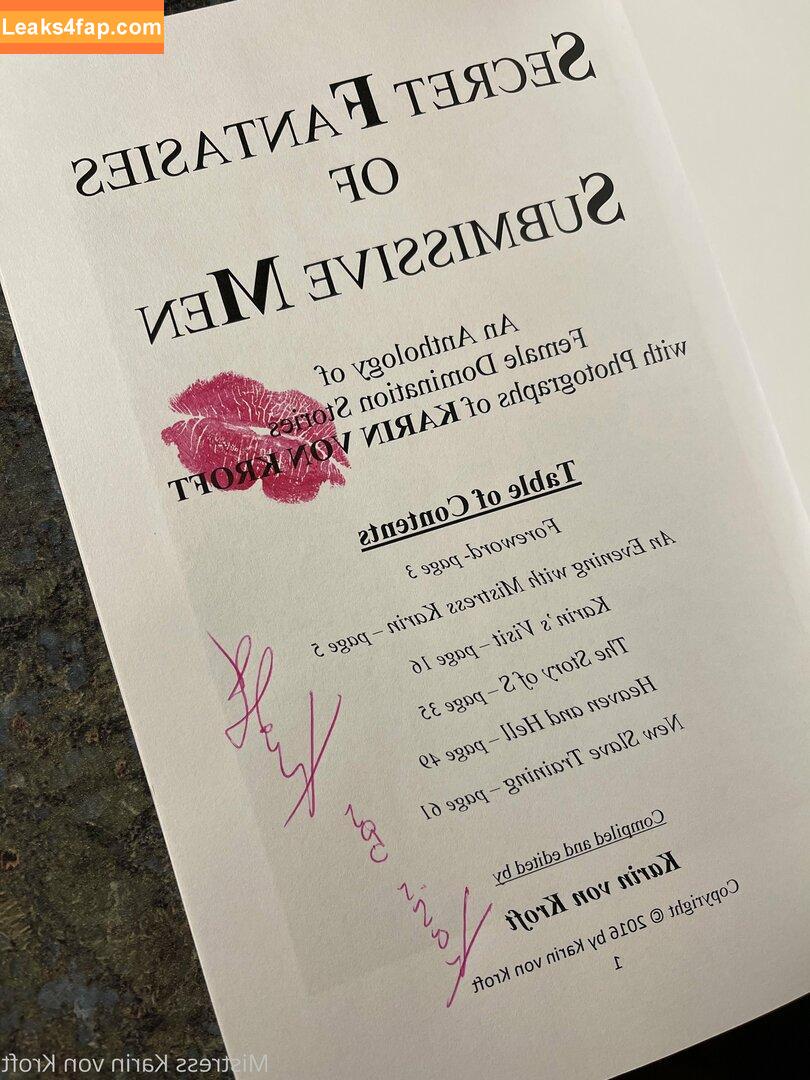 Leaks4fap.com
SECRET FANTASIES
OF
SUBMISSIVE MEN
An Anthology of
Female Domination Stories
with Photographs of KARIN VON KROFT
Table of Contents
Foreword- page 3
An Evening with Mistress Karin – page 5
Karin's Visit – page 16
The Story of S – page 35
Heaven and Hell – page 49
New Slave Training – page 61
Compiled and edited by
Karin von Kroft
Copyright © 2016 by Karin von Kroft
1
Mistress Karin von Kroft